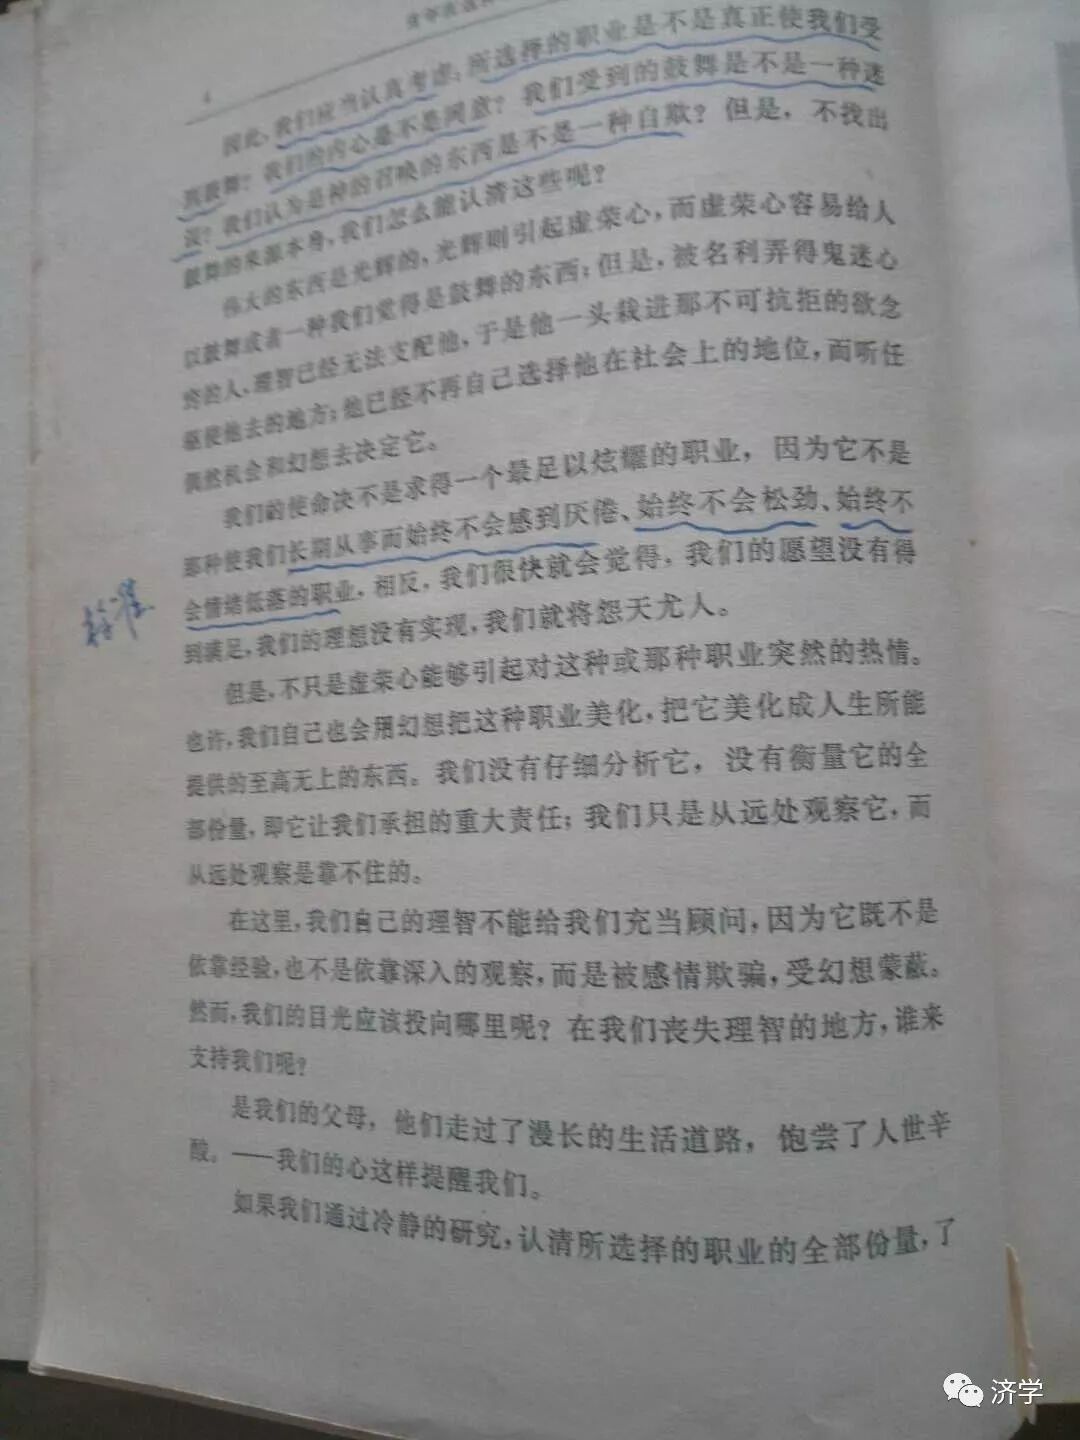 4
因此,我们应当认真考虑:所选择的职业是不是真正使我们受
到鼓舞?我们的内心是不是同意?我们受到的鼓舞是不是一种迷
误?我们认为是神的召唤的东西是不是一种自欺?但是,不找出
鼓舞的来源本身,我们怎么能认清这些呢?
伟大的东西是光辉的,光辉则引起虚荣心,而虚荣心容易给人
以鼓舞或者一种我们觉得是鼓舞的东西;但是,被名利弄得鬼迷心
窍的人,理智已经无法支配他,于是他一头栽进那不可抗拒的欲念
驱使他去的地方;他已经不再自己选择他在社会上的地位,而听任
偶然机会和幻想去决定它。
我们的使命决不是求得一个最足以炫耀的职业,因为它不是
那种使我们长期从事而始终不会感到厌倦、始终不会松劲、始终不
会情绪低落的职业,相反,我们很快就会觉得,我们的愿望没有得
到满足,我们的理想没有实现,我们就将怨天尤人。
但是,不只是虚荣心能够引起对这种或那种职业突然的热情。
也许,我们自己也会用幻想把这种职业美化,把它美化成人生所能
提供的至高无上的东西。我们没有仔细分析它,没有衡量它的全
部份量,即它让我们承担的重大责任;我们只是从远处观察它,而
从远处观察是靠不住的。
在这里,我们自己的理智不能给我们充当顾问,因为它既不是
依靠经验,也不是依靠深入的观察,而是被感情欺骗,受幻想蒙蔽。
然而,我们的目光应该投向哪里呢?在我们丧失理智的地方,谁来
支持我们呢?
是我们的父母,他们走过了漫长的生活道路,饱尝了人世辛
酸。——我们的心这样提醒我们。
如果我们通过冷静的研究,认清所选择的职业的全部份量,了
济学